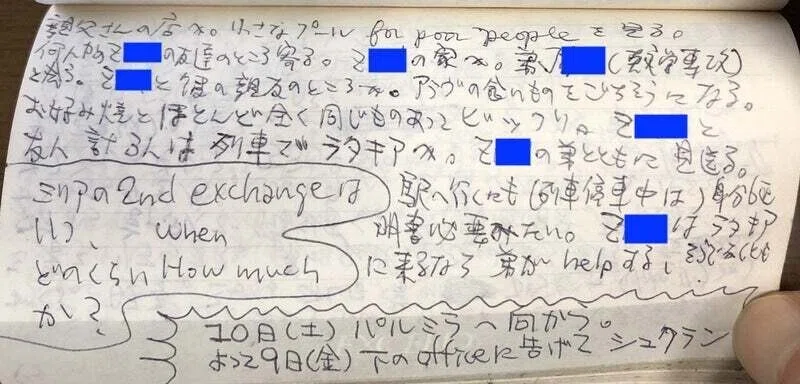 親父さんの店へ。小さなプール for poor people を見る。
何人かモの友達のところ寄る。モの家へ。弟、(数学専攻)
と会る。モと彼の親友のところへ。アラブの食いものをごちそうになる。
お好み焼とほとんど全く同じものあってビックリ。モと
友人計3人は列車でラタキアへ。モの弟とともに見送る。
駅へ行くにも(列車停車中は)身分証
明書必要みたい。モはラタキア
に来るなら弟がhelpする、そうでなくとも
シリアの2nd exchangeは
いつ、when
どのくらいHow much
か?
10日(土)パルミラへ向かう。
よって9日(金)下のofficeに告げて シュクラン